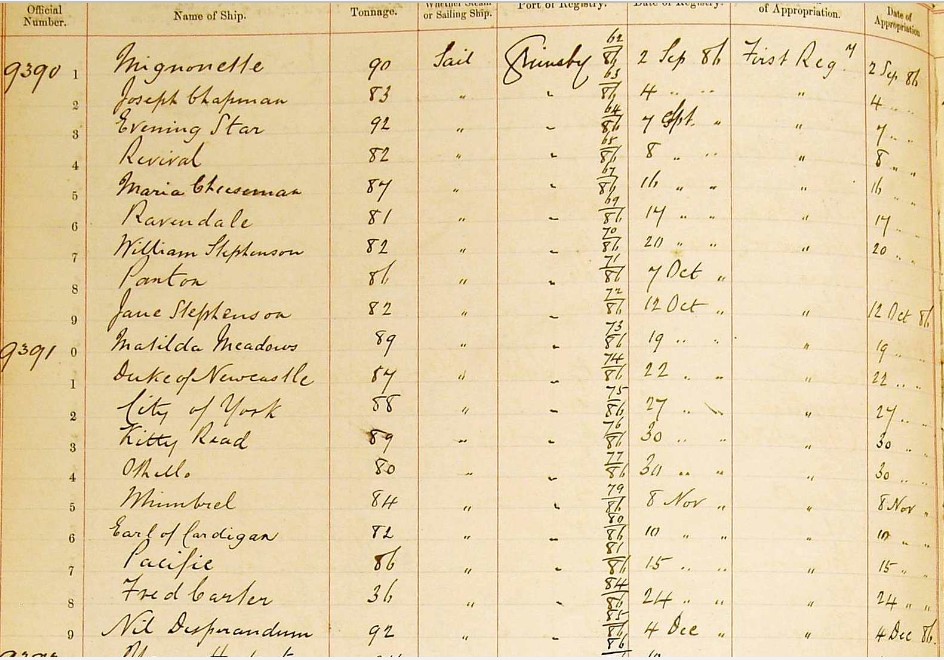 Official Number. Name of Ship. Tonnage. Whether Steam or Sailing Ship. Port of Registry. Date of Registry. of Appropriation. Date of Appropriation
9390 1 Mignonette 90 Sail Grimsby 62/86 2 Sep 86 First Regy 2 Sep 86
2 Joseph Chapman 83 " " 63/86 4 " " " 4 " "
3 Evening Star 92 " " 64/86 7 Spt. " " 7 " "
4 Revival 82 " " 65/86 8 " " " 8 " "
5 Maria Cheeseman 87 " " 67/86 16 " " " 16 " "
6 Ravendale 81 " " 69/86 17 " " " 17 " "
7 William Stephenson 82 " " 70/86 20 " " " 20 " "
8 Panton 86 " " 71/86 7 Oct " "
9 Jane Stephenson 82 " " 72/86 12 Oct " " 12 Oct 86
9391 0 Matilda Meadows 89 " " 73/86 19 " " " 19 " "
1 Duke of Newcastle 87 " " 74/86 22 " " " 22 " "
2 City of York 88 " " 75/86 27 " " " 27 " "
3 Kitty Read 89 " " 76/86 30 " " " 30 " "
4 Othello 80 " " 77/86 30 " " " 30 " "
5 Whimbrel 84 " " 79/86 8 Nov " " 8 Nov "
6 Earl of Cardigan 82 " " 80/86 10 " " " 10 " "
7 Pacific 86 " " 81/86 15 " " " 15 " "
8 Fred Carter 36 " " 84/86 24 " " " 24 " "
9 Nil Desperandum 92 " " 85/86 4 Dec " " 4 Dec 86.